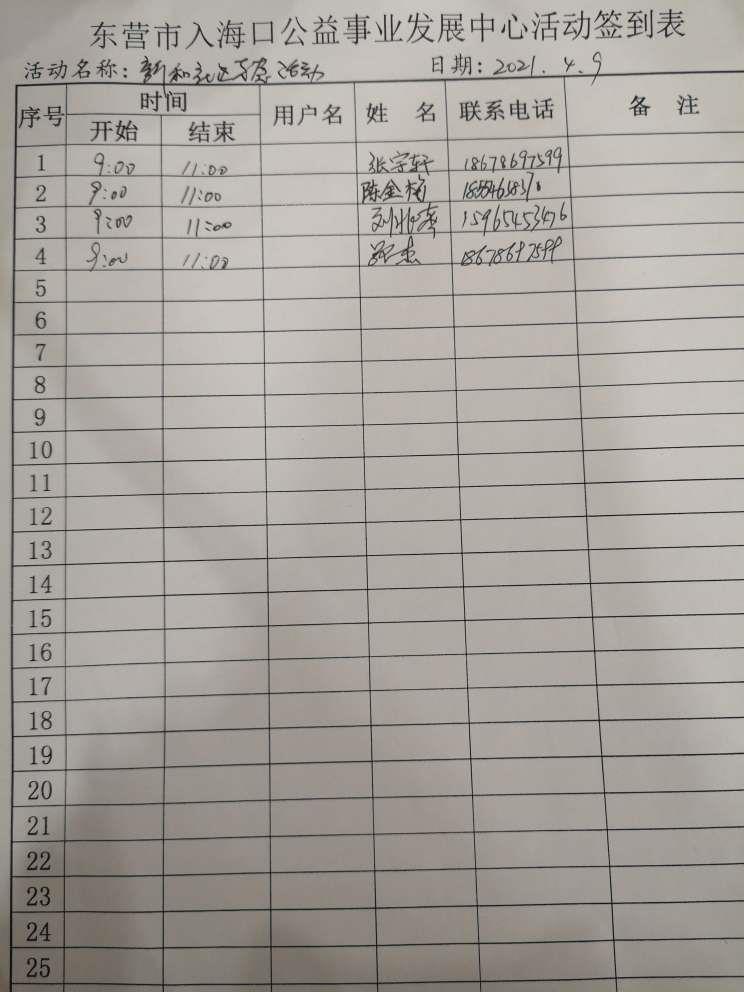 东营市入海口公益事业发展中心活动签到表
活动名称：新和社区 活动 日期：2021.4.9
序号 时间 用户名 姓 名 联系电话 备 注
开始 结束
1 9:00 11:00 张宇轩 18678697599
2 9:00 11:00 陈金梅
3 9:00 11:00 15965453476
4 9:00 11:00 18678697599
5
6
7
8
9
10
11
12
13
14
15
16
17
18
19
20
21
22
23
24
25